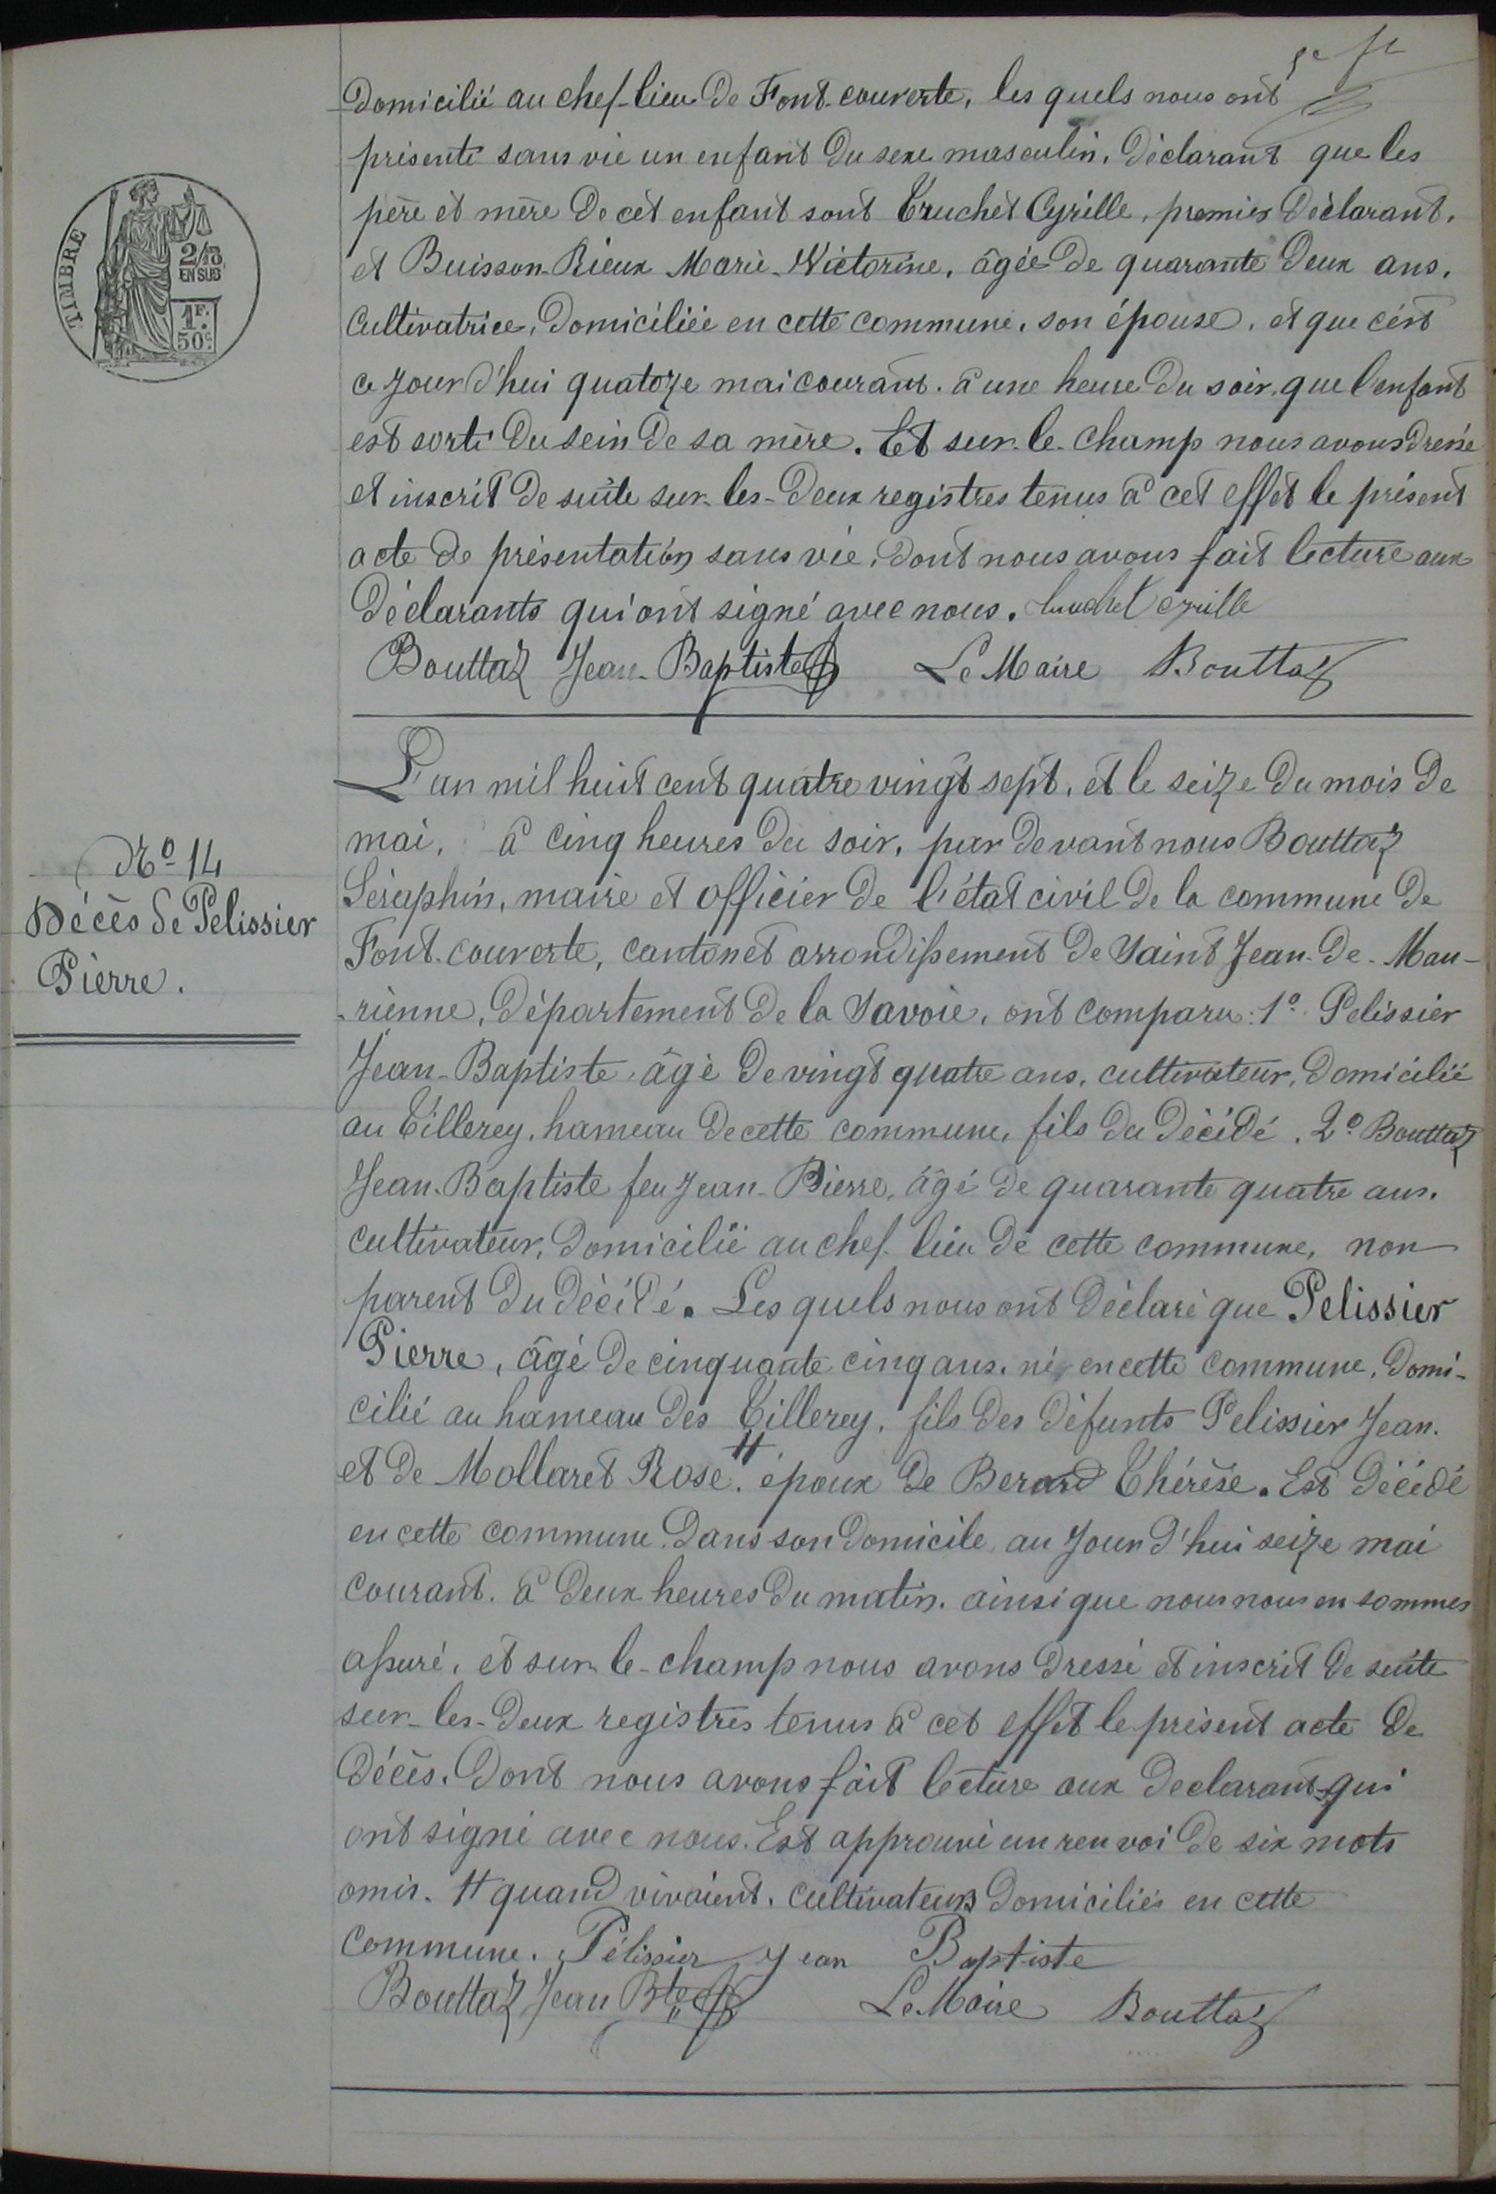 5e ft
domicilié au chef-lieu de Font-couverte, les quels nous ont
présenté sans vie un enfant du sexe masculin, déclarant que les
père et mère de cèt enfant sont Truchet Cyrille, premier déclarant,
et Buisson-Rieux Marie-Victorine, âgée de quarante deux ans,
TIMBRE
2/10
EN SUS
1F.
50c.
Cultivatrice, domiciliée en cette commune, son épouse, et que c'est
ce jour d'hui quatoze mai courant. à une heure du soir que l'enfant
est sorti du sein de sa mère. Et sur-le-champ nous avons dressé
et inscrit de suite sur-les-deux registres tenus à cet effet le présent
acte de présentation sans vie, dont nous avons fait lecture aux
déclarants qui ont signé avec nous. truchet cyrille
Bouttaz Jean-Baptiste Le Maire Bouttaz
L'an mil huit cent quatre vingt sept, et le seize du mois de
mai, à cinq heures du soir, par devant nous Bouttaz
Séraphin, maire et officier de l'état civil de la commune de
Font-couverte, canton et arrondissement de Saint Jean-de-Mau-
-rienne, département de la Savoie, ont comparu: 1º Pelissier
Jean-Baptiste âgé de vingt quatre ans, cultivateur, domicilié
au Tillerey, hameau de cette commune, fils du décédé, 2º Bouttaz
Jean-Baptiste feu Jean-Pierre, âgé de quarante quatre ans.
cultivateur, domicilié au chef-lieu de cette commune, non
parent du décédé. Les quels nous ont déclaré que Pelissier
Pierre, âgé de cinquante cinq ans, né en cette commune, domi-
cilié au hameau des Tillerey, fils des défunts Pelissier Jean.
et de Mollaret Rose, # époux de Berard Thérèse. Est décédé
en cette commune dans son domicile au jour d'hui seize mai
courant. à deux heures du matin. ainsi que nous nous en sommes
assuré, et sur-le-champ nous avons dressé et inscrit de suite
sur-les-deux registres tenus à cet effet le présent acte de
décès. dont nous avons fait lecture aux declarants qui
ont signé avec nous. Est approuvé un renvoi de six mots
omis. # quand vivaient, cultivateurs domiciliés en cette
commune. Pélissier jean Baptiste
Bouttaz Jean Bte Le Maire Bouttaz
Nº 14
Décès de Pelissier
Pierre.